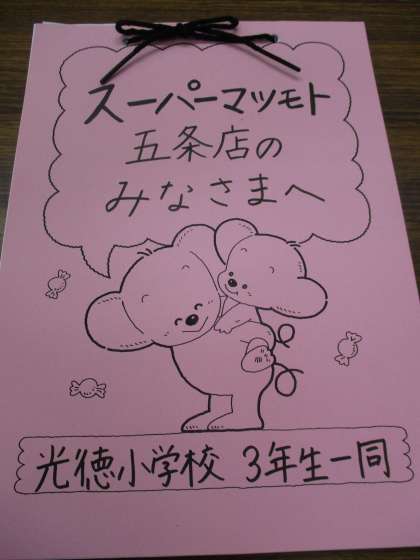 スーパーマツモト
五条店の
みなさまへ
光徳小学校 3年生一同